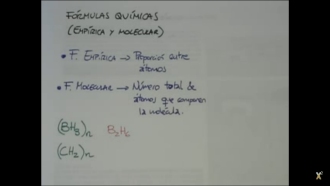 FÓRMULAS QUÍMICAS
(EMPÍRICA Y MOLECULAR)
• F. EMPÍRICA → Proporción entre
átomos
• F. MOLECULAR → Número total de
átomos que componen
la molécula.
(BH₃)n B₂H₆
(CH₂)n